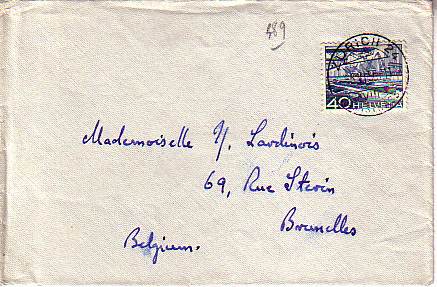 489
ZÜRICH 24
40 HELVETIA
Mademoiselle Y. Lardinois
69, Rue Stévin
Bruxelles
Belgium.